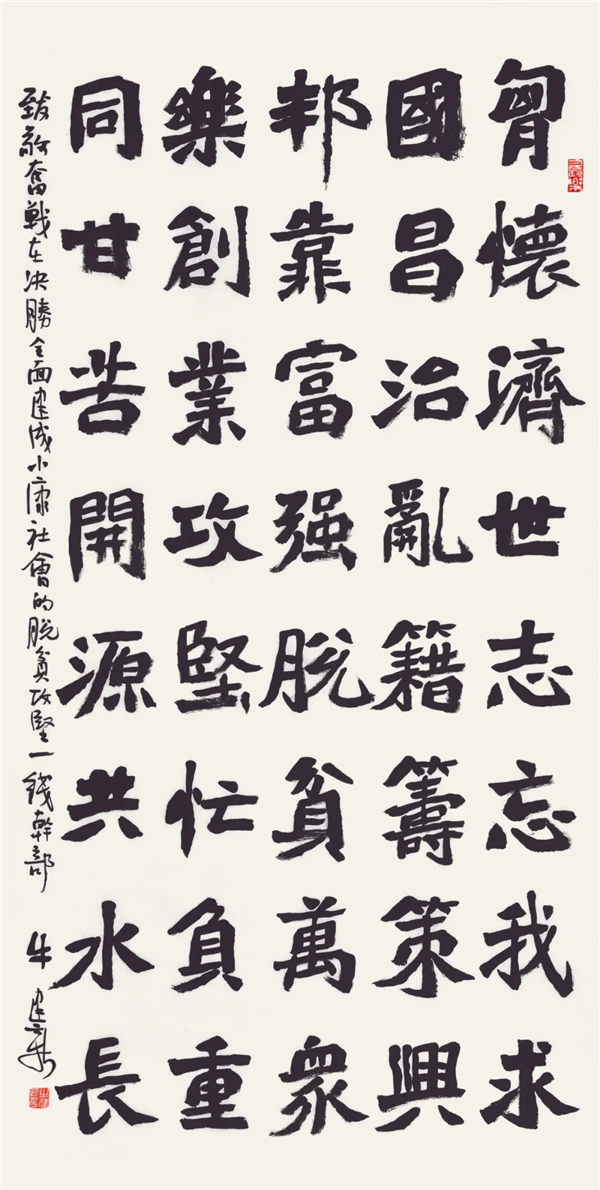 胷懷濟世志忘我求
國昌治亂籍籌策興
邦靠富强脱貧萬衆
樂創業攻堅忙負重
同甘苦開源共水長
致敬奮戰在决勝全面建成小康社會的脱貧攻堅一綫幹部 牛建